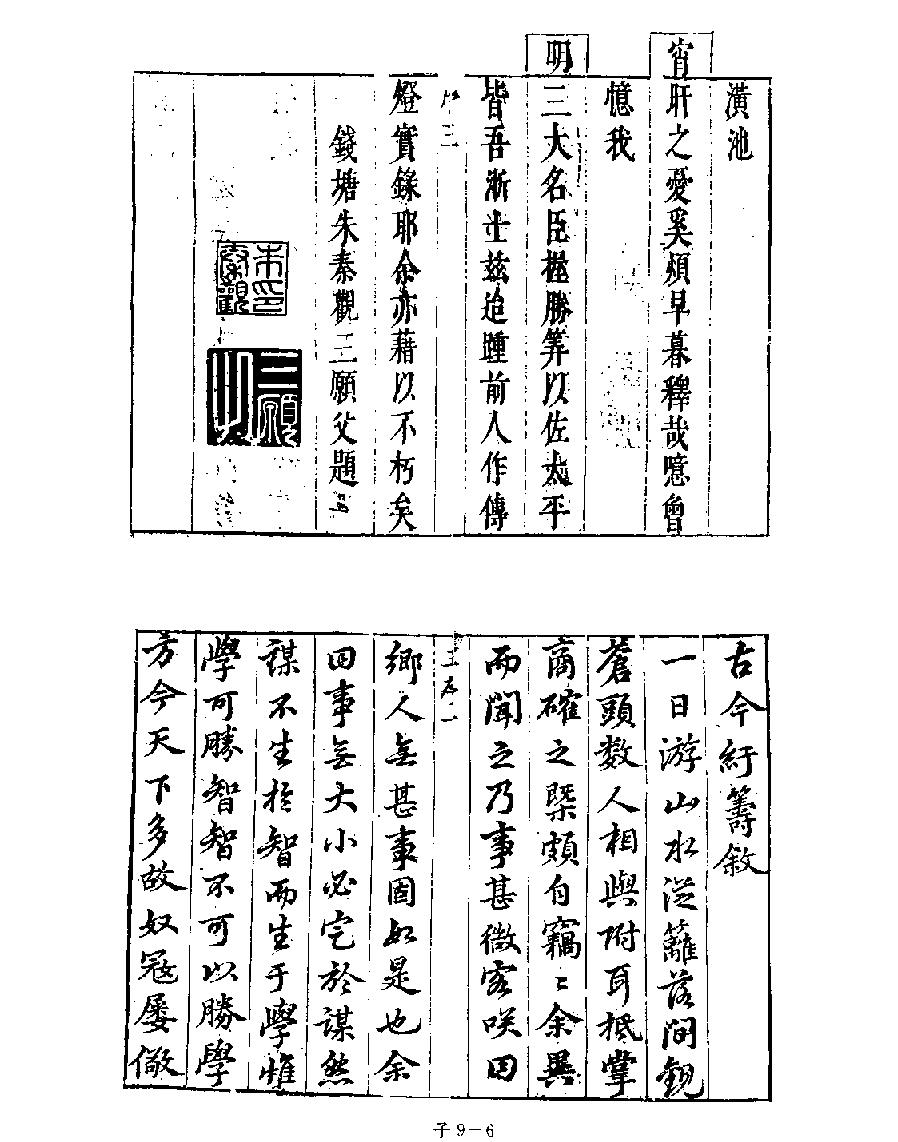 潢池
宵旰之憂奚煩早暮釋哉噫曾
憶我
明三大名臣握勝筭以佐太平
皆吾浙士茲迨踵前人作傳
燈實錄耶余亦藉以不朽矣
錢塘朱秦觀三願父題
朱印秦觀
三願
古今紆籌敘
一日游山水從籬落間觀
蒼頭數人相與附耳抵掌
商確之槩頗自竊〻余異
而聞之乃事甚微客咲曰
鄉人無甚事固如是也余
曰事無大小必定於謀然
謀不生於智而生于學惟
學可勝智智不可以勝學
方今天下多故奴寇屢儆
子9-6